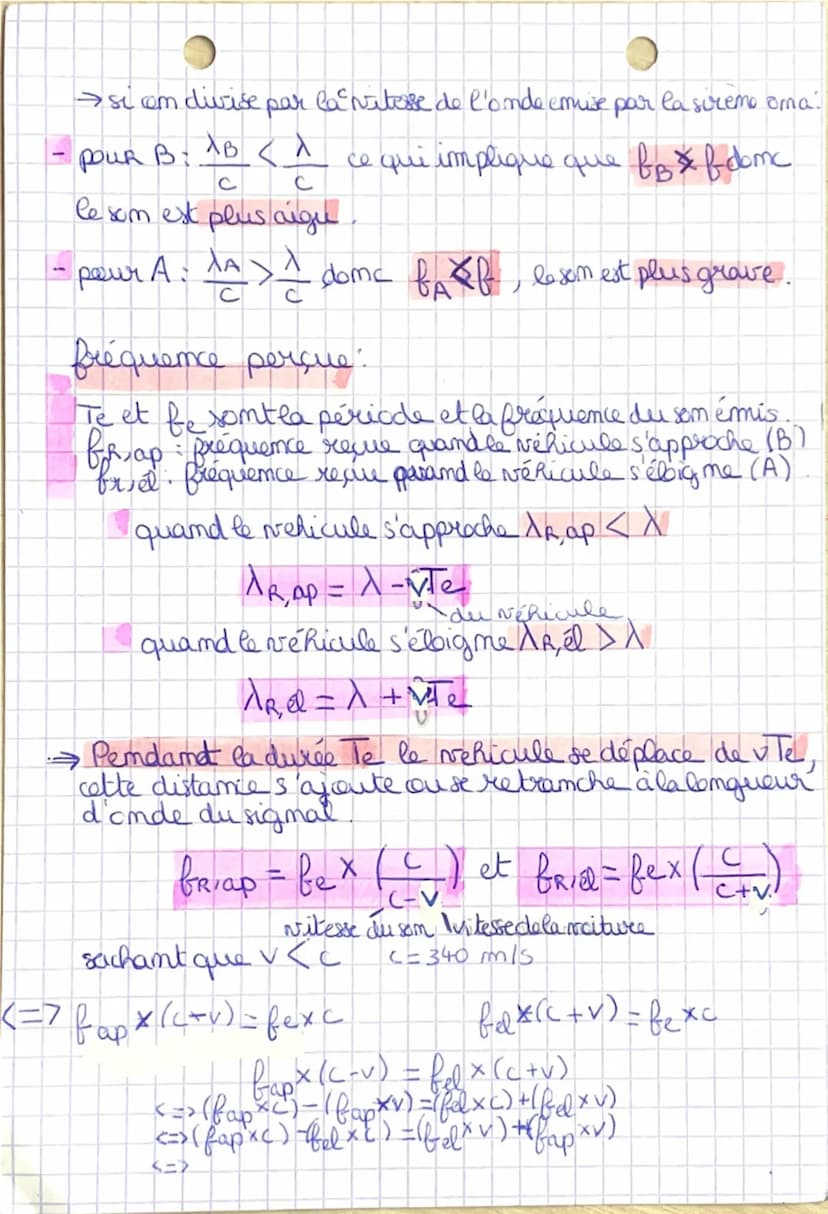 → si on divise par la c vitesse de l'onde émise par la sirène on a :
- pour B : λB/c < λ/c ce qui implique que fB > f donc
le son est plus aigu.
- pour A : λA/c > λ/c donc fA < f, le son est plus grave.
fréquence perçue :
Te et fe sont la période et la fréquence du son émis.
fR,ap : fréquence reçue quand le véhicule s'approche (B)
fr,él : fréquence reçue quand le véhicule s'éloigne (A)
quand le vehicule s'approche λR,ap < λ
λR,ap = λ - vTe
du véhicule
quand le véhicule s'éloigne λR,él > λ
λR,él = λ + vTe
⇒ Pendant la durée Te le vehicule se déplace de vTe,
cette distance s'ajoute ou se retranche à la longueur
d'onde du signal.
fR,ap = fe × (c/(c-v)) et fR,él = fe × (c/(c+v))
vitesse du son vitesse de la voiture
sachant que v < c c = 340 m/s
<=> fap × (c-v) = fe × c fel × (c+v) = fe × c
fap × (c-v) = fel × (c+v)
<=> (fap × c) - (fap × v) = (fel × c) + (fel × v)
<=> (fap × c) - (fel × c) = (fel × v) + (fap × v)
<=>